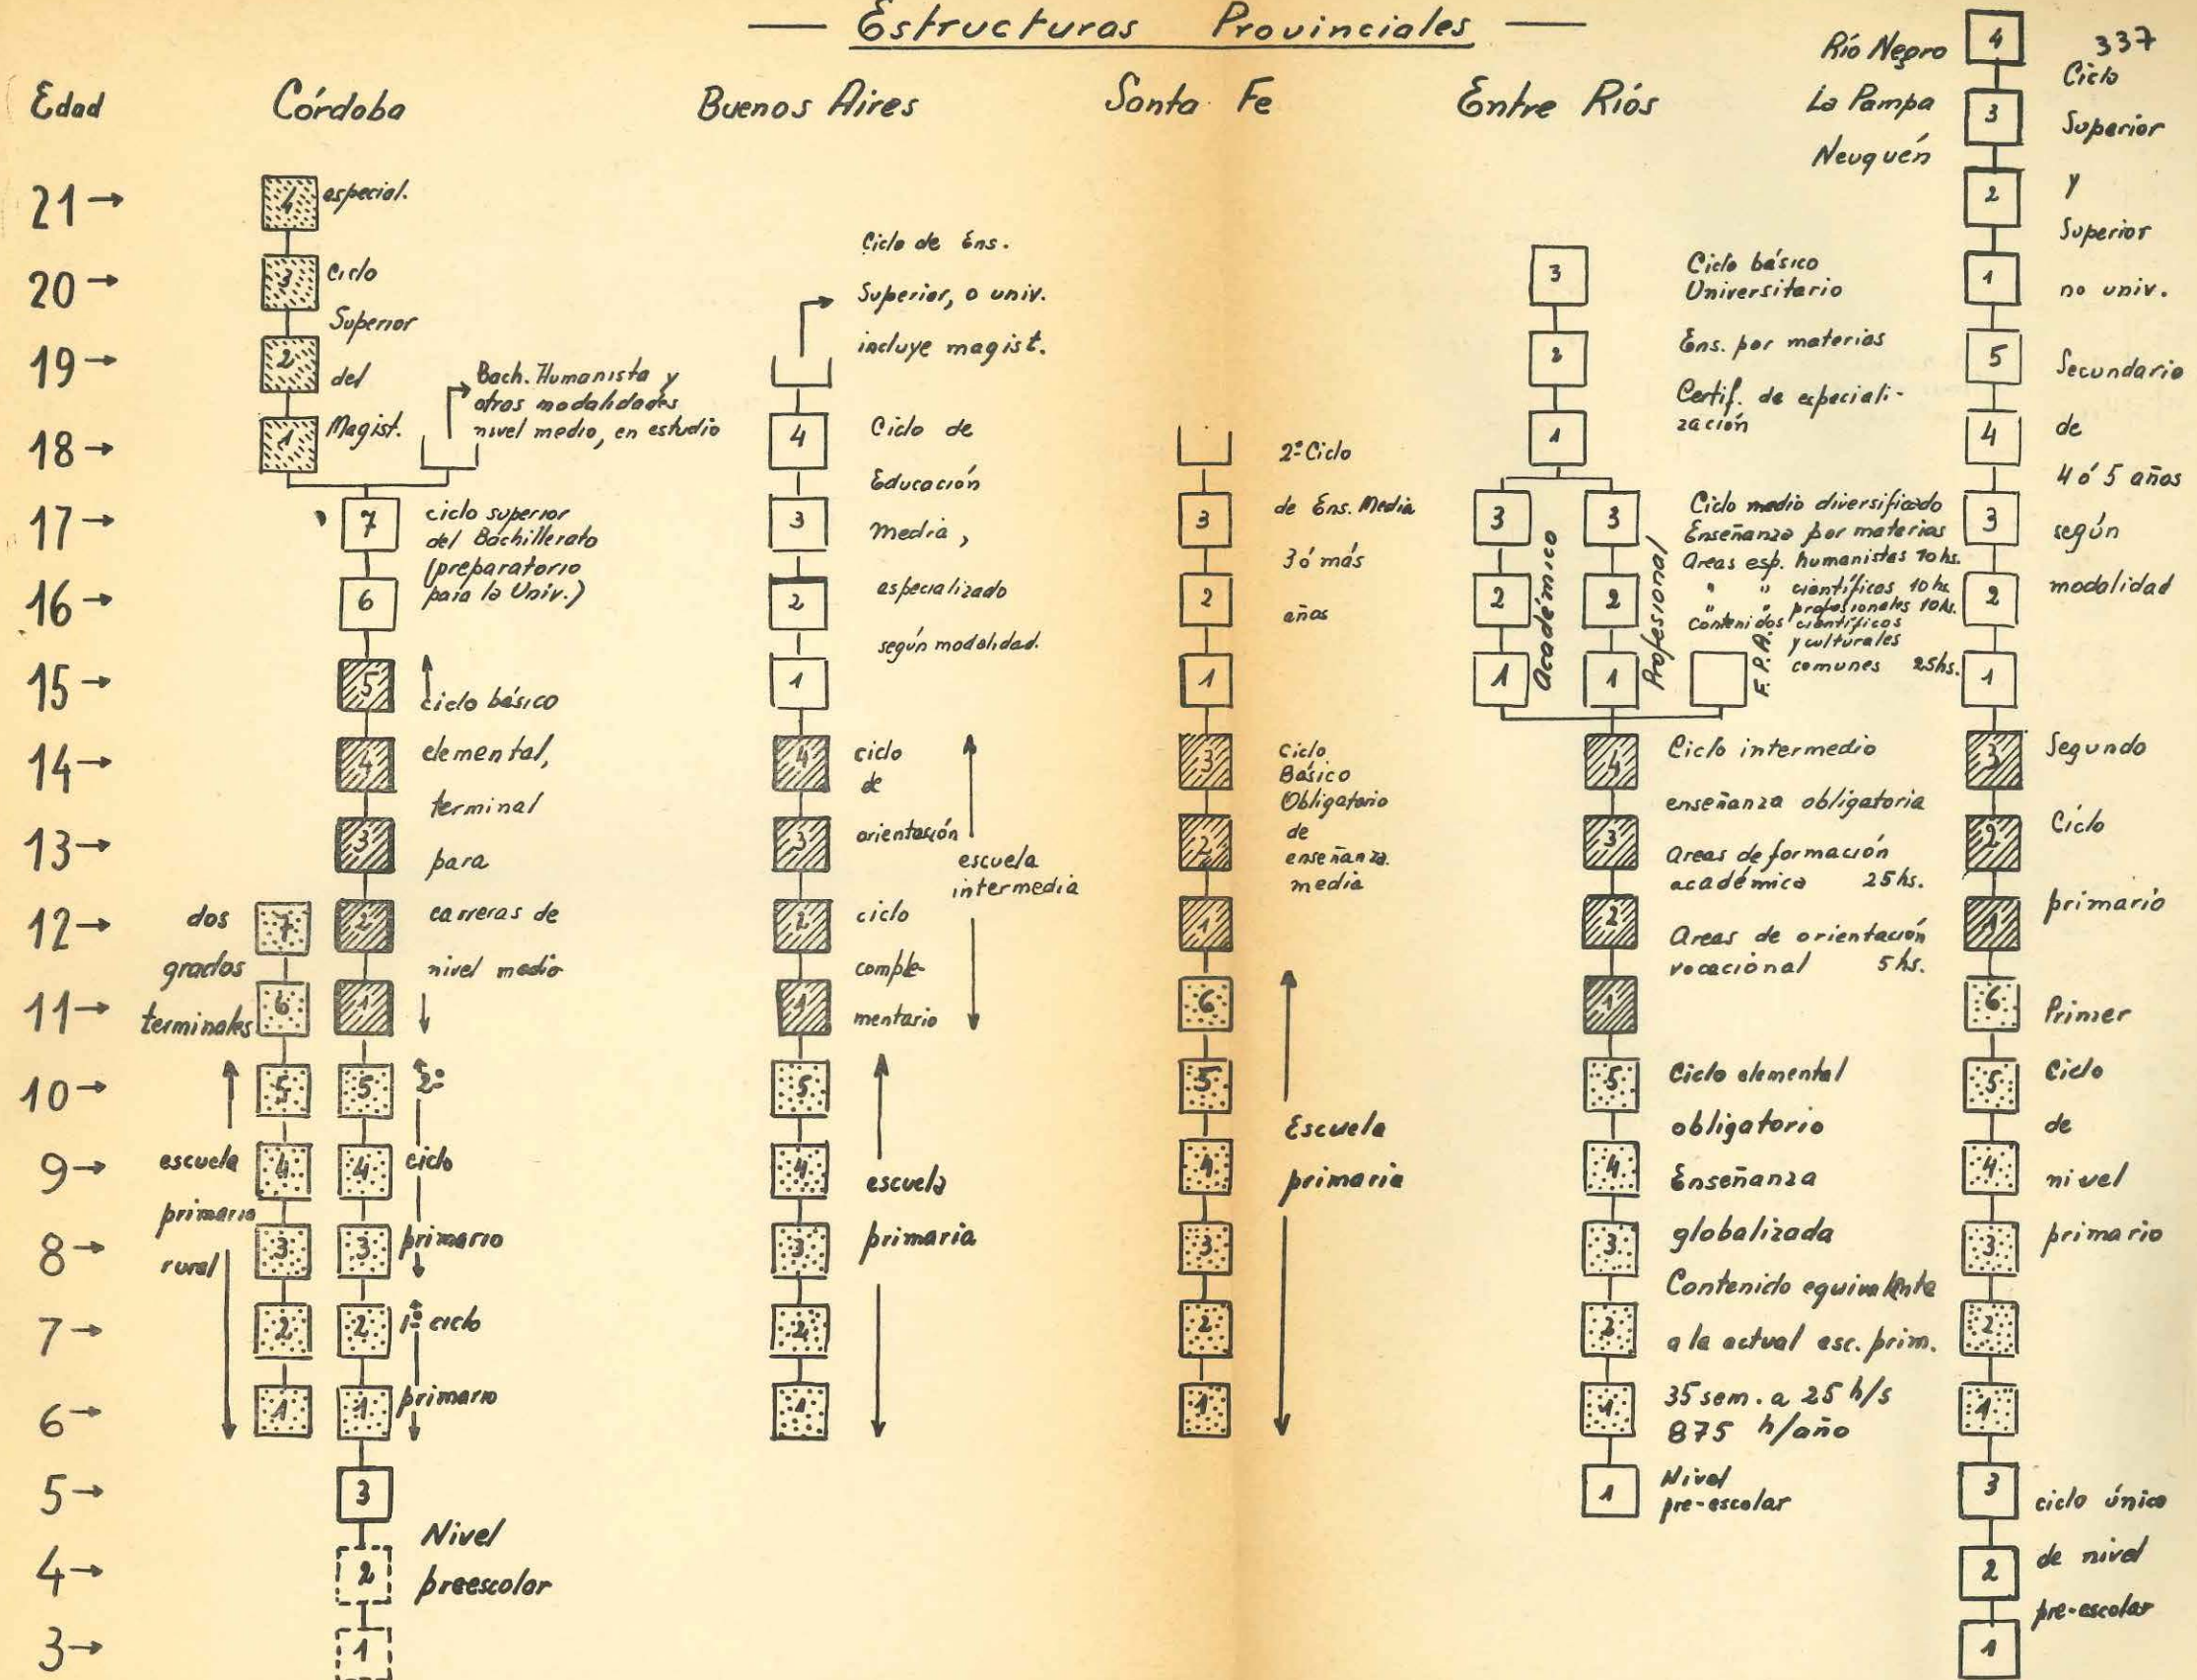 — Estructuras Provinciales —
337
Edad
21→
20→
19→
18→
17→
16→
15→
14→
13→
12→
11→
10→
9→
8→
7→
6→
5→
4→
3→
Córdoba
4
3
2
1
especial.
Ciclo
Superior
del
Magist.
Bach. Humanista y
otras modalidades
nivel medio, en estudio
7
6
ciclo superior
del Bachillerato
(preparatorio
para la Univ.)
5
4
3
2
1
ciclo básico
elemental,
terminal
para
carreras de
nivel medio
dos
grados
terminales
7
6
5
4
3
2
1
escuela
primaria
rural
5
4
3
2
1
2º
ciclo
primario
1º ciclo
primario
3
2
1
Nivel
preescolar
Buenos Aires
Ciclo de Ens.
Superior, o univ.
incluye magist.
4
3
2
1
Ciclo de
Educación
media,
especializado
según modalidad.
4
3
2
1
ciclo
de
orientación
ciclo
comple-
mentario
escuela
intermedia
5
4
3
2
1
escuela
primaria
Santa Fe
2º Ciclo
de Ens. Media
3 ó más
años
3
2
1
3
2
1
Ciclo
Básico
Obligatorio
de
enseñanza.
media
6
5
4
3
2
1
Escuela
primaria
Entre Ríos
3
2
1
Ciclo básico
Universitario
Ens. por materias
Certif. de especiali-
zación
3
2
1
Académico
3
2
1
Profesional
F.P.A.
Ciclo medio diversificado
Enseñanza por materias
Areas esp. humanistas 10 hs.
" " científicos 10 hs.
" " profesionales 10 hs.
Contenidos científicos
y culturales
comunes 25 hs.
4
3
2
1
Ciclo intermedio
enseñanza obligatoria
Areas de formación
académica 25 hs.
Areas de orientación
vocacional 5 hs.
5
4
3
2
1
Ciclo elemental
obligatorio
Enseñanza
globalizada
Contenido equivalente
a la actual esc. prim.
35 sem. a 25 h/s
875 h/año
1
Nivel
pre-escolar
Río Negro
La Pampa
Neuquén
4
3
2
1
Ciclo
Superior
y
Superior
no univ.
5
4
3
2
1
Secundario
de
4 ó 5 años
según
modalidad
3
2
1
Segundo
Ciclo
primario
6
5
4
3
2
1
Primer
Ciclo
de
nivel
primario
3
2
1
ciclo único
de nivel
pre-escolar